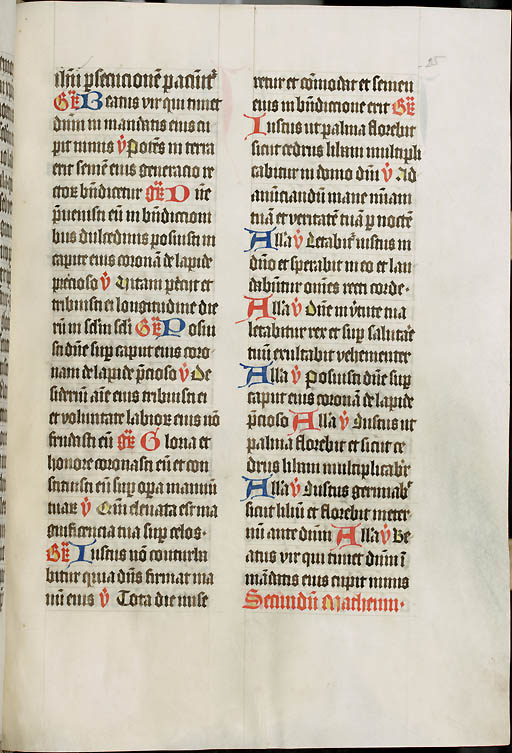 illius p̱secucionē paciūt᷑
GR̄ Beatus vir qui timet
dūm in mandatis eius cu
pit nimis ℣ Potēs in terra
erit semē eius generacio re
ctoꝝ bn̄dicetur GR̄ Dn̄e
p̄uenisti eū in bn̄dictioni
bus dulcedinis posuisti in
capite eius coronam de lapide
precioso ℣ Vitam pēcijt et
tribuisti ei longitudinē die
rū in sc̄lm sc̄li GR̄ Posui
sti dn̄e suꝑ caput eius coro
nam de lapide p̄cioso ℣ De
sideriū aīe eius tribuisti ei
et voluntate labioꝝ eius nō
frudasti eū GR̄ Gloria et
honore coronasti eū et con
stituisti eū suꝑ oꝑa manuū
tuaꝝ ℣ Qm̄ eleuata est ma
gnificencia tua suꝑ celos.
GR̄ Iustus nō conturba
bitur quia dn̄s firmat ma
nū eius ℣ Tota die mise
retur et cōmodat et semen
eius in bn̄dictione erit GR̄
Iustus ut palma florebit
sicut cedrus libani multipli
cabitur in domo dn̄i ℣ Ad
anūciandū mane mīam
tuā et veritatē tuā ꝑ noctē
Alla ℣ Letabit᷑ iustus in
dn̄o et sperabit in eo et lau
dabūtur om̄es recti corde.
Alla ℣ Dn̄e in v̄tute tua
letabitur rex et suꝑ salutare
tuū exultabit vehementer
Alla ℣ Posuisti dn̄e suꝑ
caput eius coronā de lapide
p̄cioso Alla ℣ Iustus ut
palmā florebit et sicut ce
drus libani multiplicabit᷑
Alla ℣ Iustus germiab᷑
sicut liliū et florebit in eter
nū ante dnm̄ Alla ℣ Be
atus vir qui timet dn̄m ī
mādatis eius cupit nimis
Secundū Matheum.